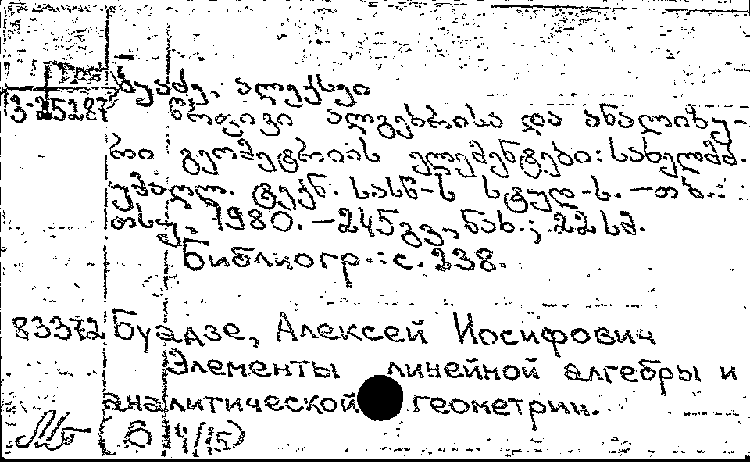 ბუაძე, ალექსეი
3-25287 წრფივი ალგებრისა და ანალიზუ-
რი გეომეტრიის ელემენტები: სახელმძ.
უმაღლ. ტექნ. სასწ-ს სტუდ-ს. – თბ.:
თსუ, 1980. – 245გვ, ნახ.; 22 სმ.
Библиогр.: с. 238.
83372 Буадзе, Алексей Иосифович
Элементы линейной алгебры и
аналитической геометрии.
(В 14/15)